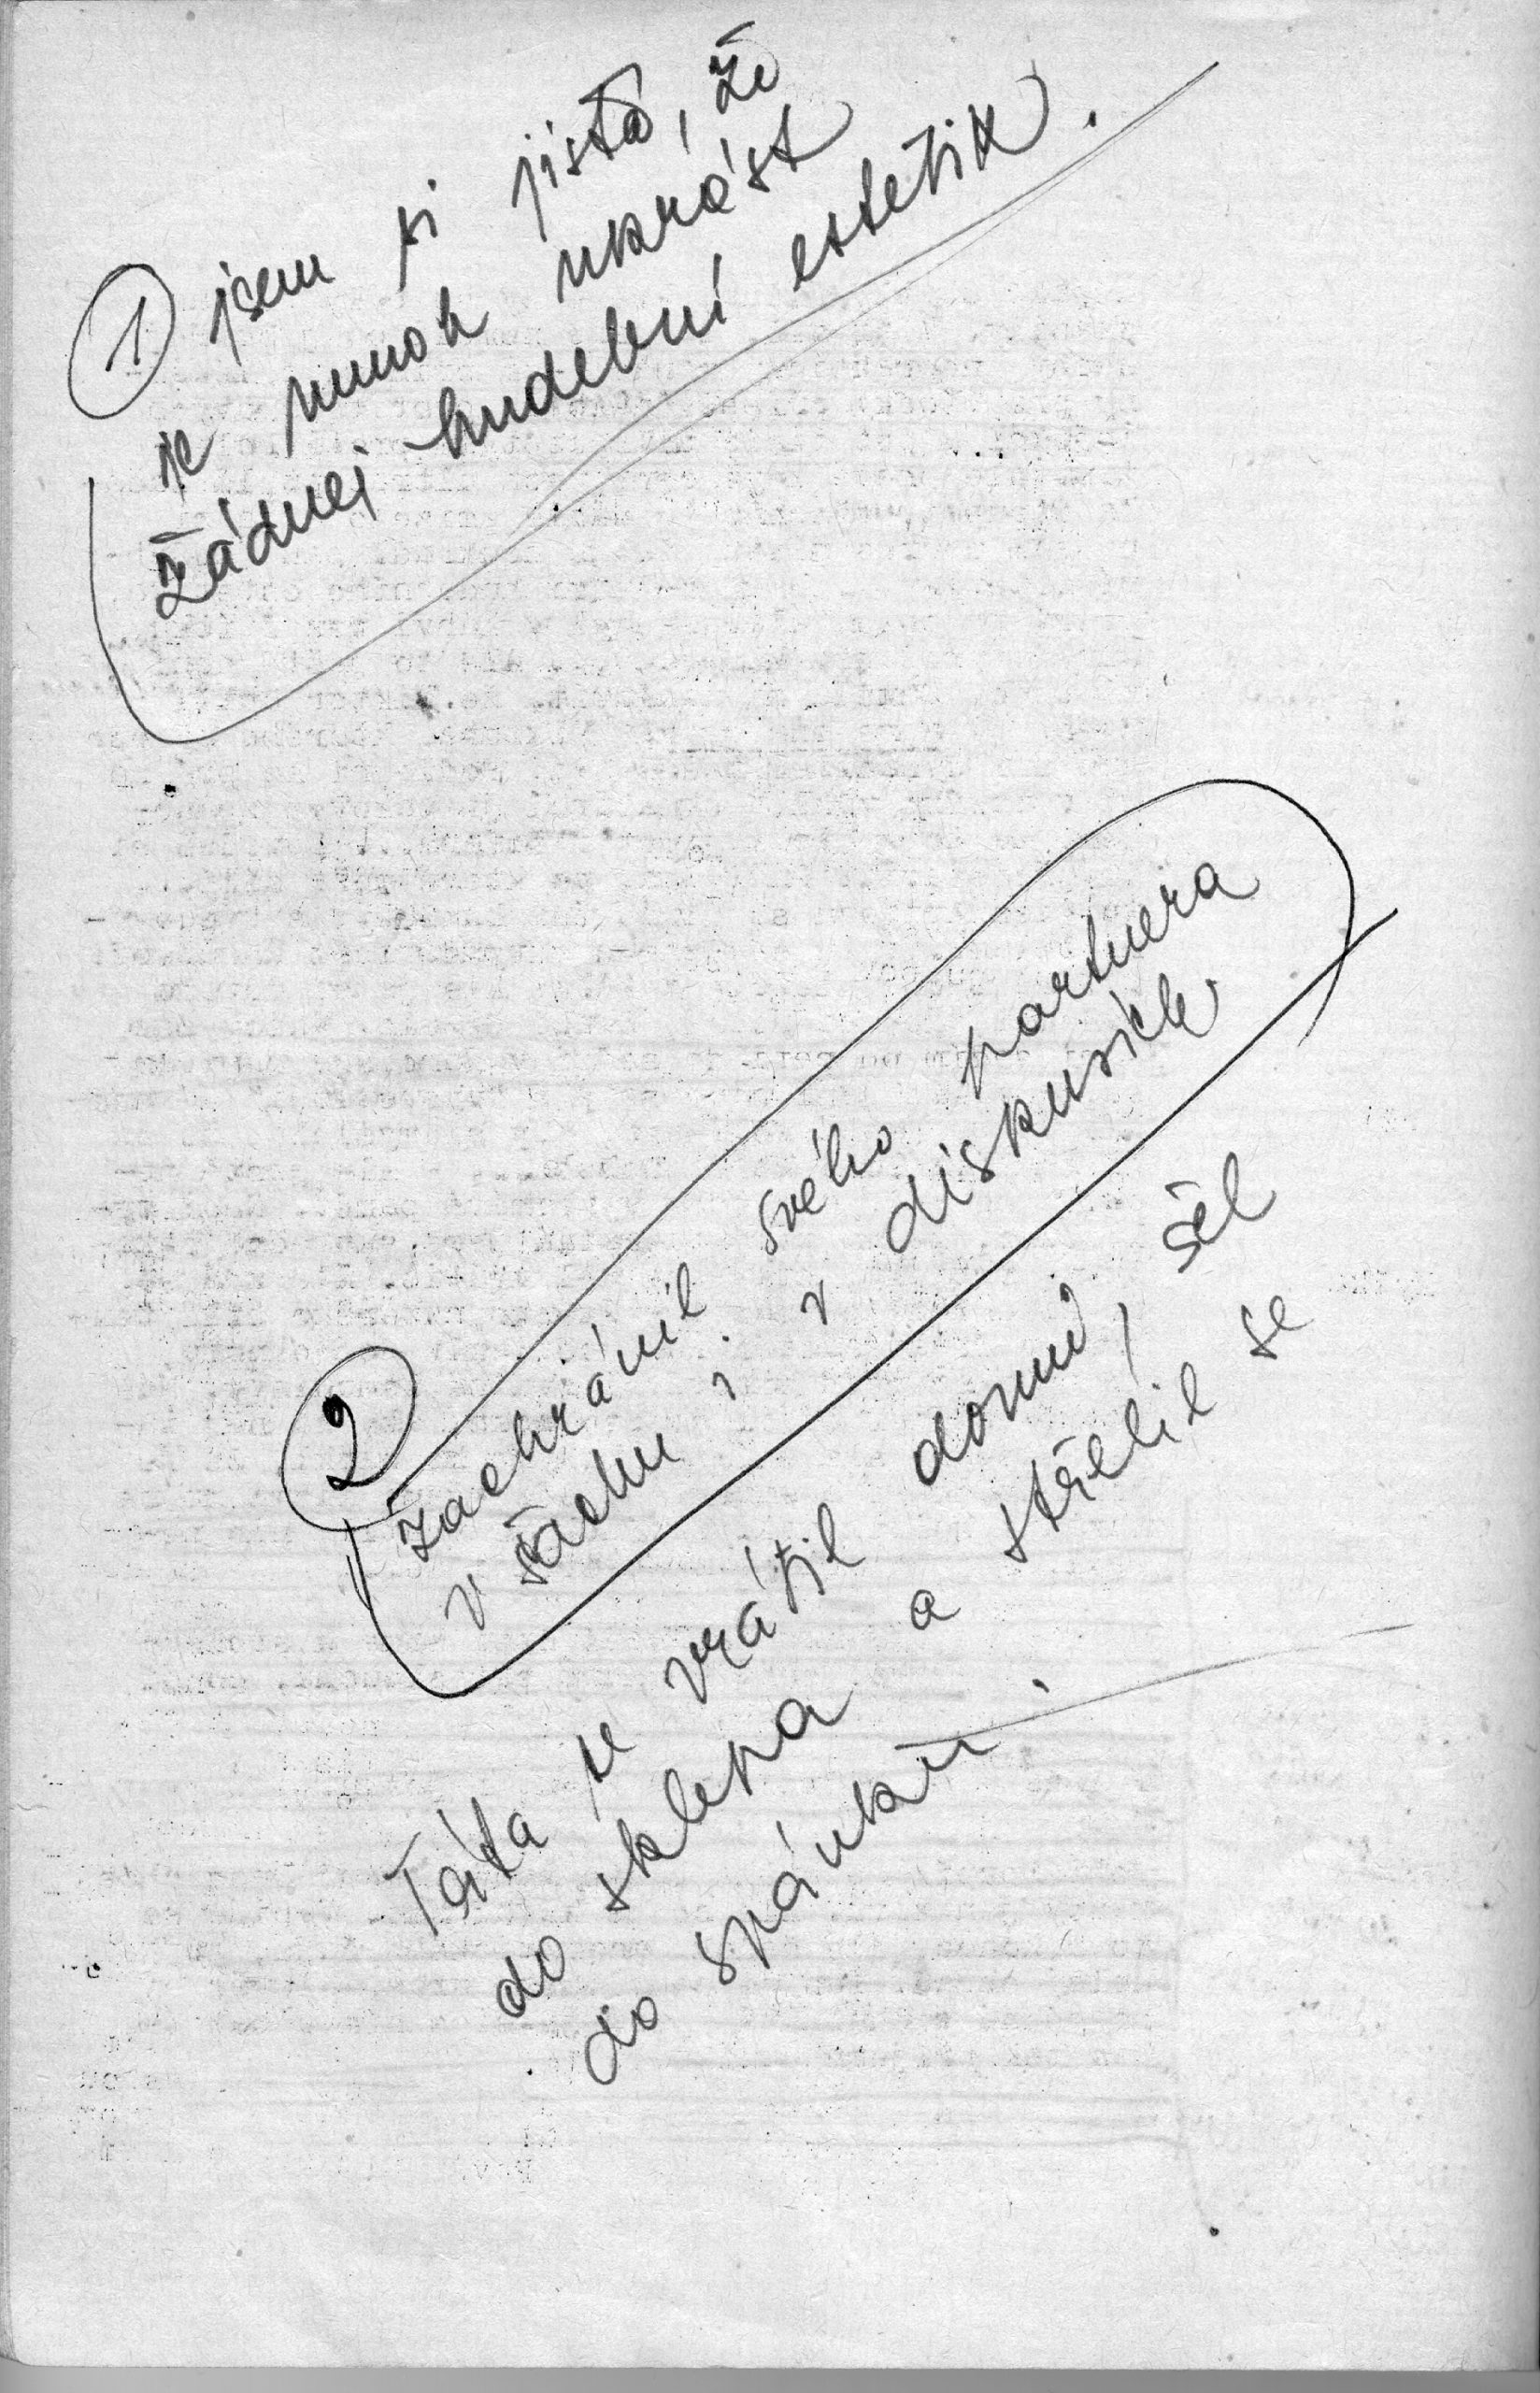 1 jsem si jistá, že
je nemoh ukrást
žádnej hudební estetik.
2
zachránil svého partnera
v šachu i v diskusích
Táta se vrátil domů, šel
do sklepa a střelil se
do spánku.